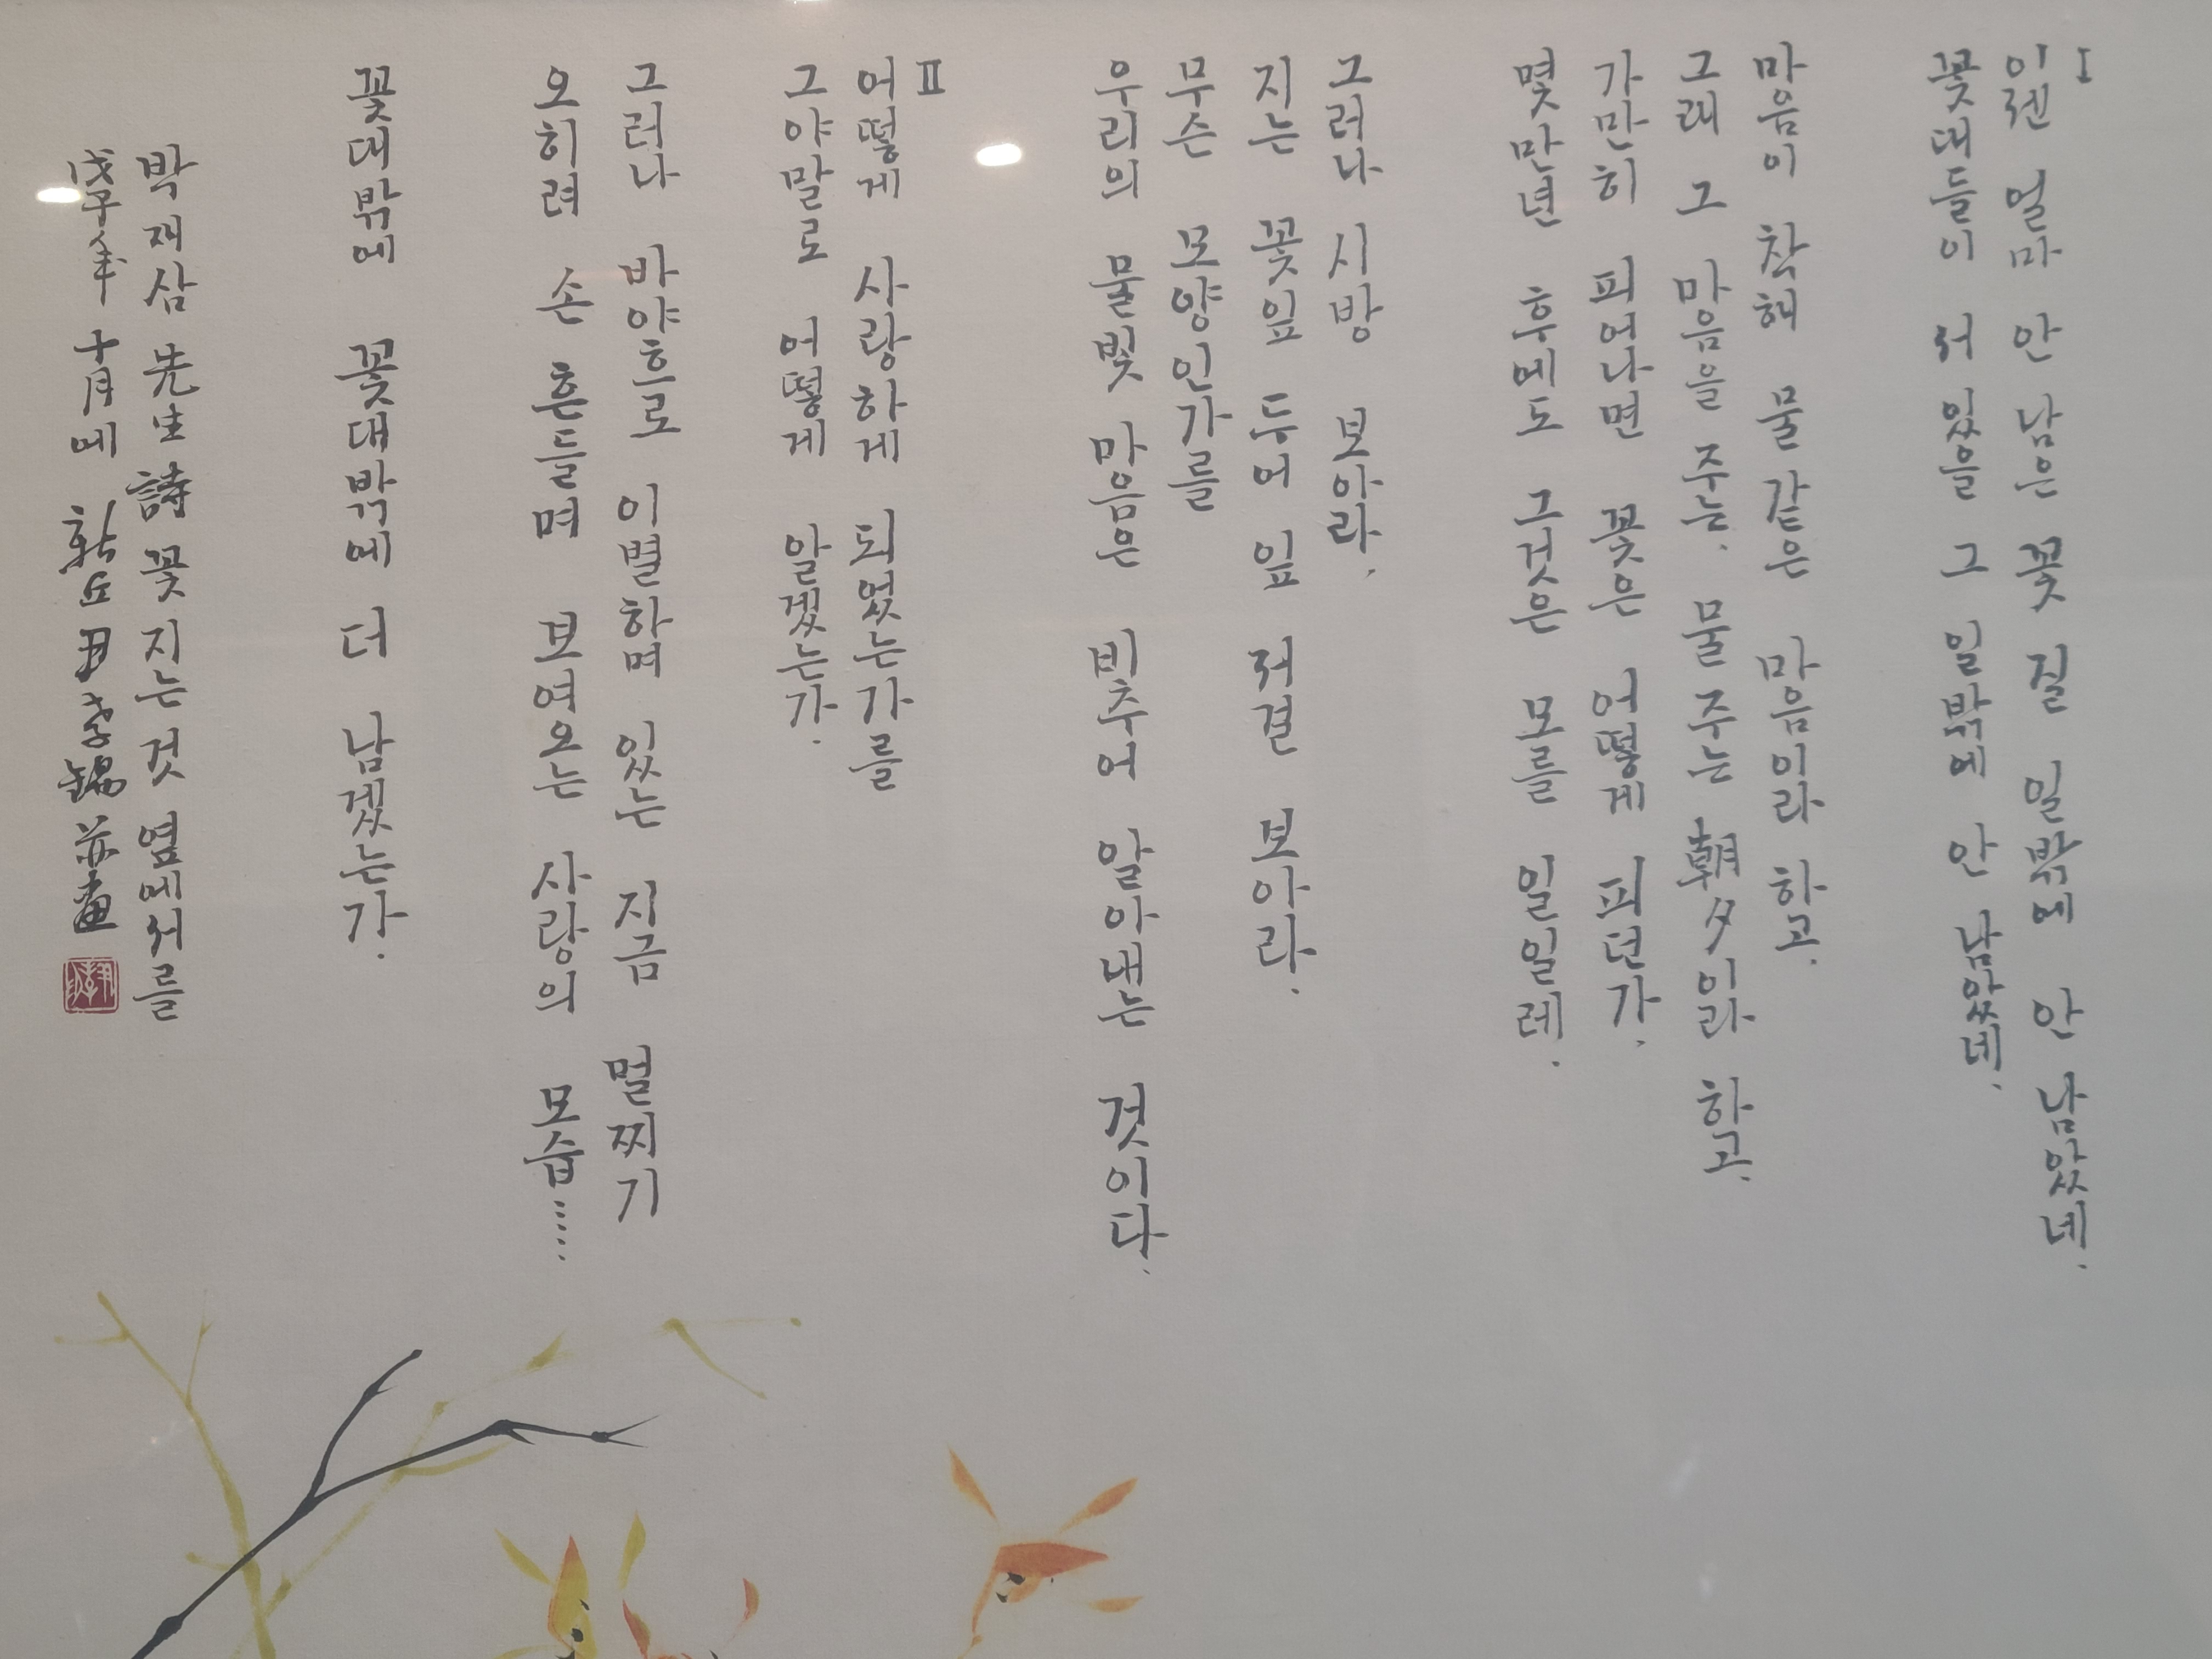 I
이젠 얼마 안 남은 꽃 질 일밖에 안 남았네.
꽃대들이 서 있을 그 일밖에 안 남았네.
마음이 착해 물 같은 마음이라 하고.
그래 그 마음을 주는, 물 주는 朝夕이라 하고.
가만히 피어나면 꽃은 어떻게 피던가.
몇만년 후에도 그것은 모를 일일레.
그러나 시방 보아라,
지는 꽃잎 두어 잎 저결 보아라.
무슨 모양인가를
우리의 물빛 마음은 비추어 알아내는 것이다.
II
어떻게 사랑하게 되었는가를
그야말로 어떻게 알겠는가.
그러나 바야흐로 이별하며 있는 지금 멀찌기
오히려 손 흔들며 보여오는 사랑의 모습……
꽃대밖에 꽃대밖에 더 남겠는가.
박재삼 先生 詩 꽃 지는 것 옆에서를
戊子年 十月에 丘 李錫